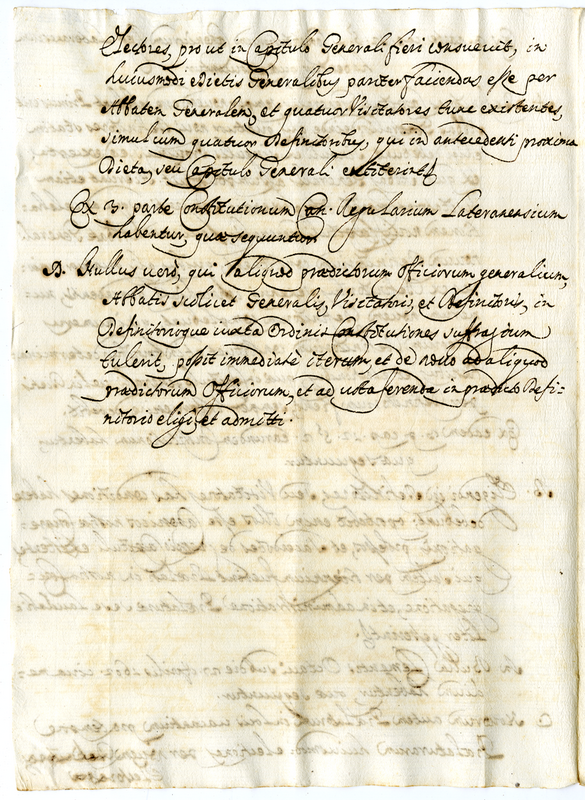 Electores, prout in Capitulo Generali fieri consuevit, in
huiusmodi Dietis Generalibus pariter faciendas esse per
Abbatem Generalem, et quatuor Visitatores tunc existentes,
simul cum quatuor Definitoribus, qui in antecedenti proxima
Dieta, seu Capitulo Generali extiterint
Ex 3. parte Constitutionum Can. Regularium Lateranensium
habentur, quæ sequuntur
D. Nullus verò, qui aliquod prædictorum Officiorum generalium,
Abbatis scilicet Generalis, Visitatoris, et Definitoris, in
Definitorioque iuxta Ordinis Constitutiones suffragium
tulerit, possit immediatè iterum, et de novo ad aliquod
prædictorum Officiorum, et ad ferenda in prædicto Defi-
nitorio eligi, et admitti.